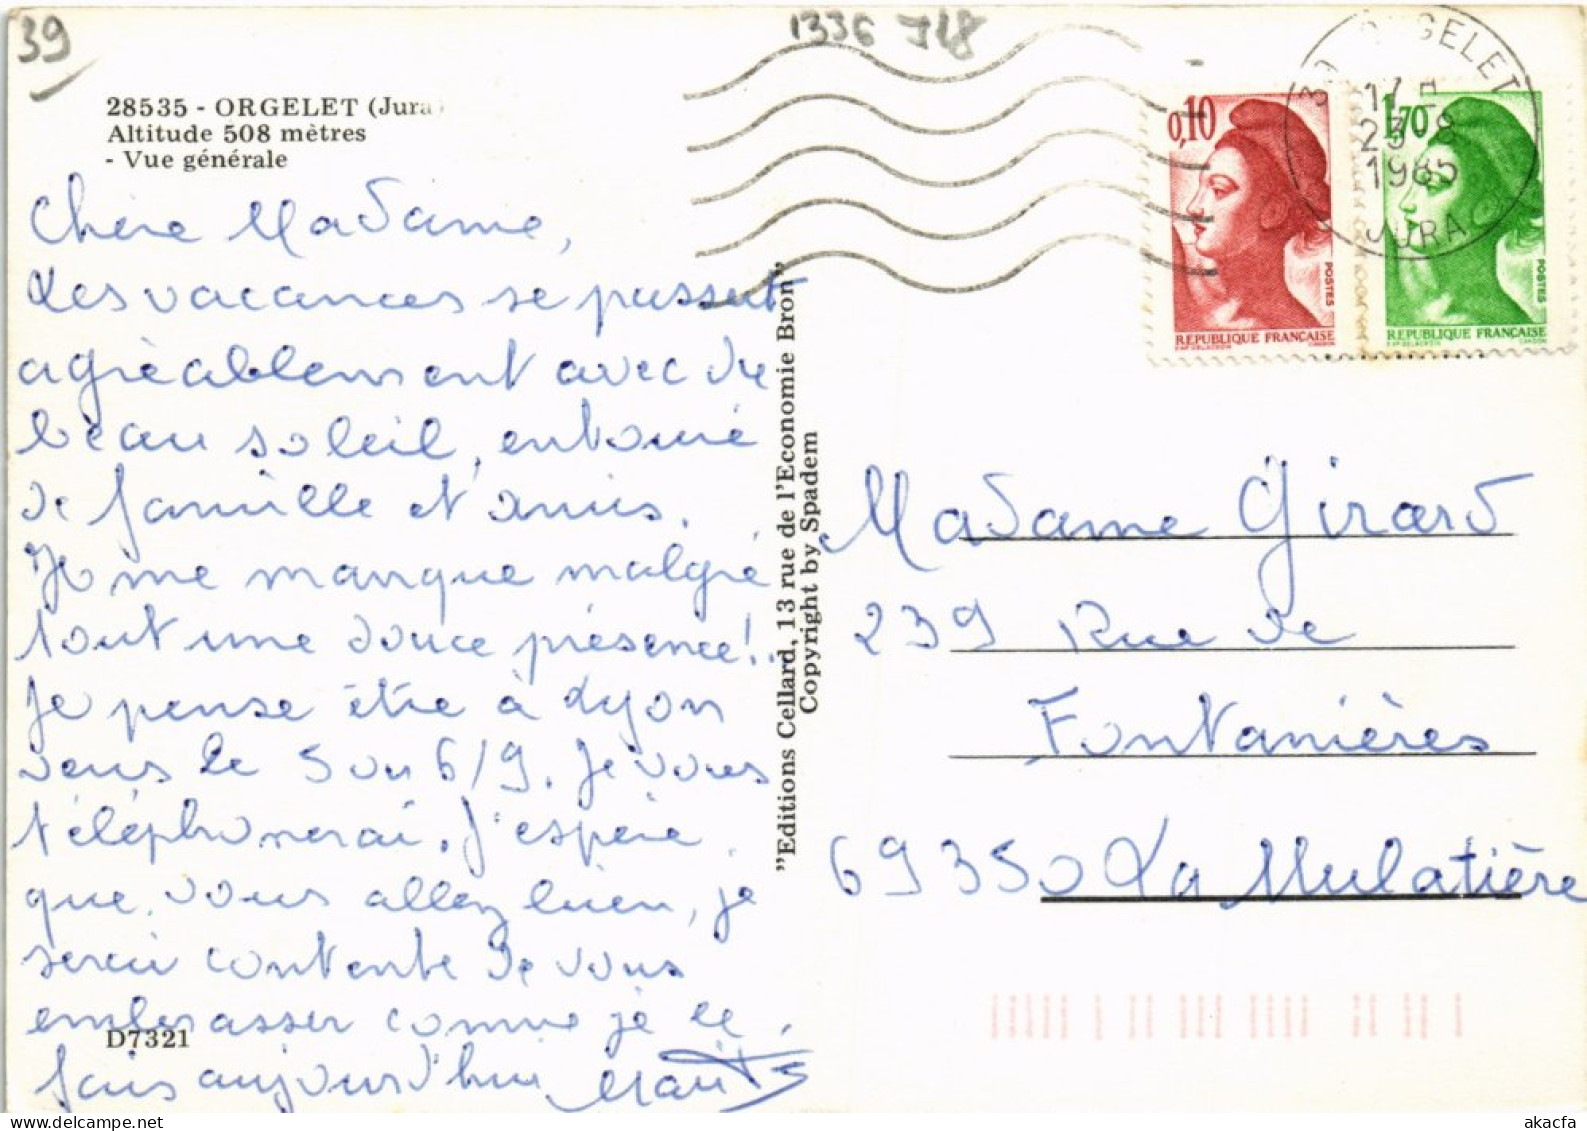 39
1336 J18
28535 - ORGELET (Jura)
Altitude 508 mètres
- Vue générale
Chère Madame,
Les vacances se passent
agréablement avec du
beau soleil, entouré
de famille et d'amis.
Je me manque malgré
tout une douce présence!..
Je pense être à Lyon
vers le 5 ou 6/9. Je vous
téléphonerai. J'espère
que vous allez bien, je
serai contente de vous
embrasser comme je le
fais aujourd'hui
D7321
"Editions Cellard, 13 rue de l'Economie Bron"
Copyright by Spadem
39 ORGELET
17 H
23-8
1985
JURA
0,10
POSTES
REPUBLIQUE FRANÇAISE
1,70
POSTES
REPUBLIQUE FRANÇAISE
Madame Girard
239 Rue de
Fontanières
69350 La Mulatière
www.akacfa.com
akacfa